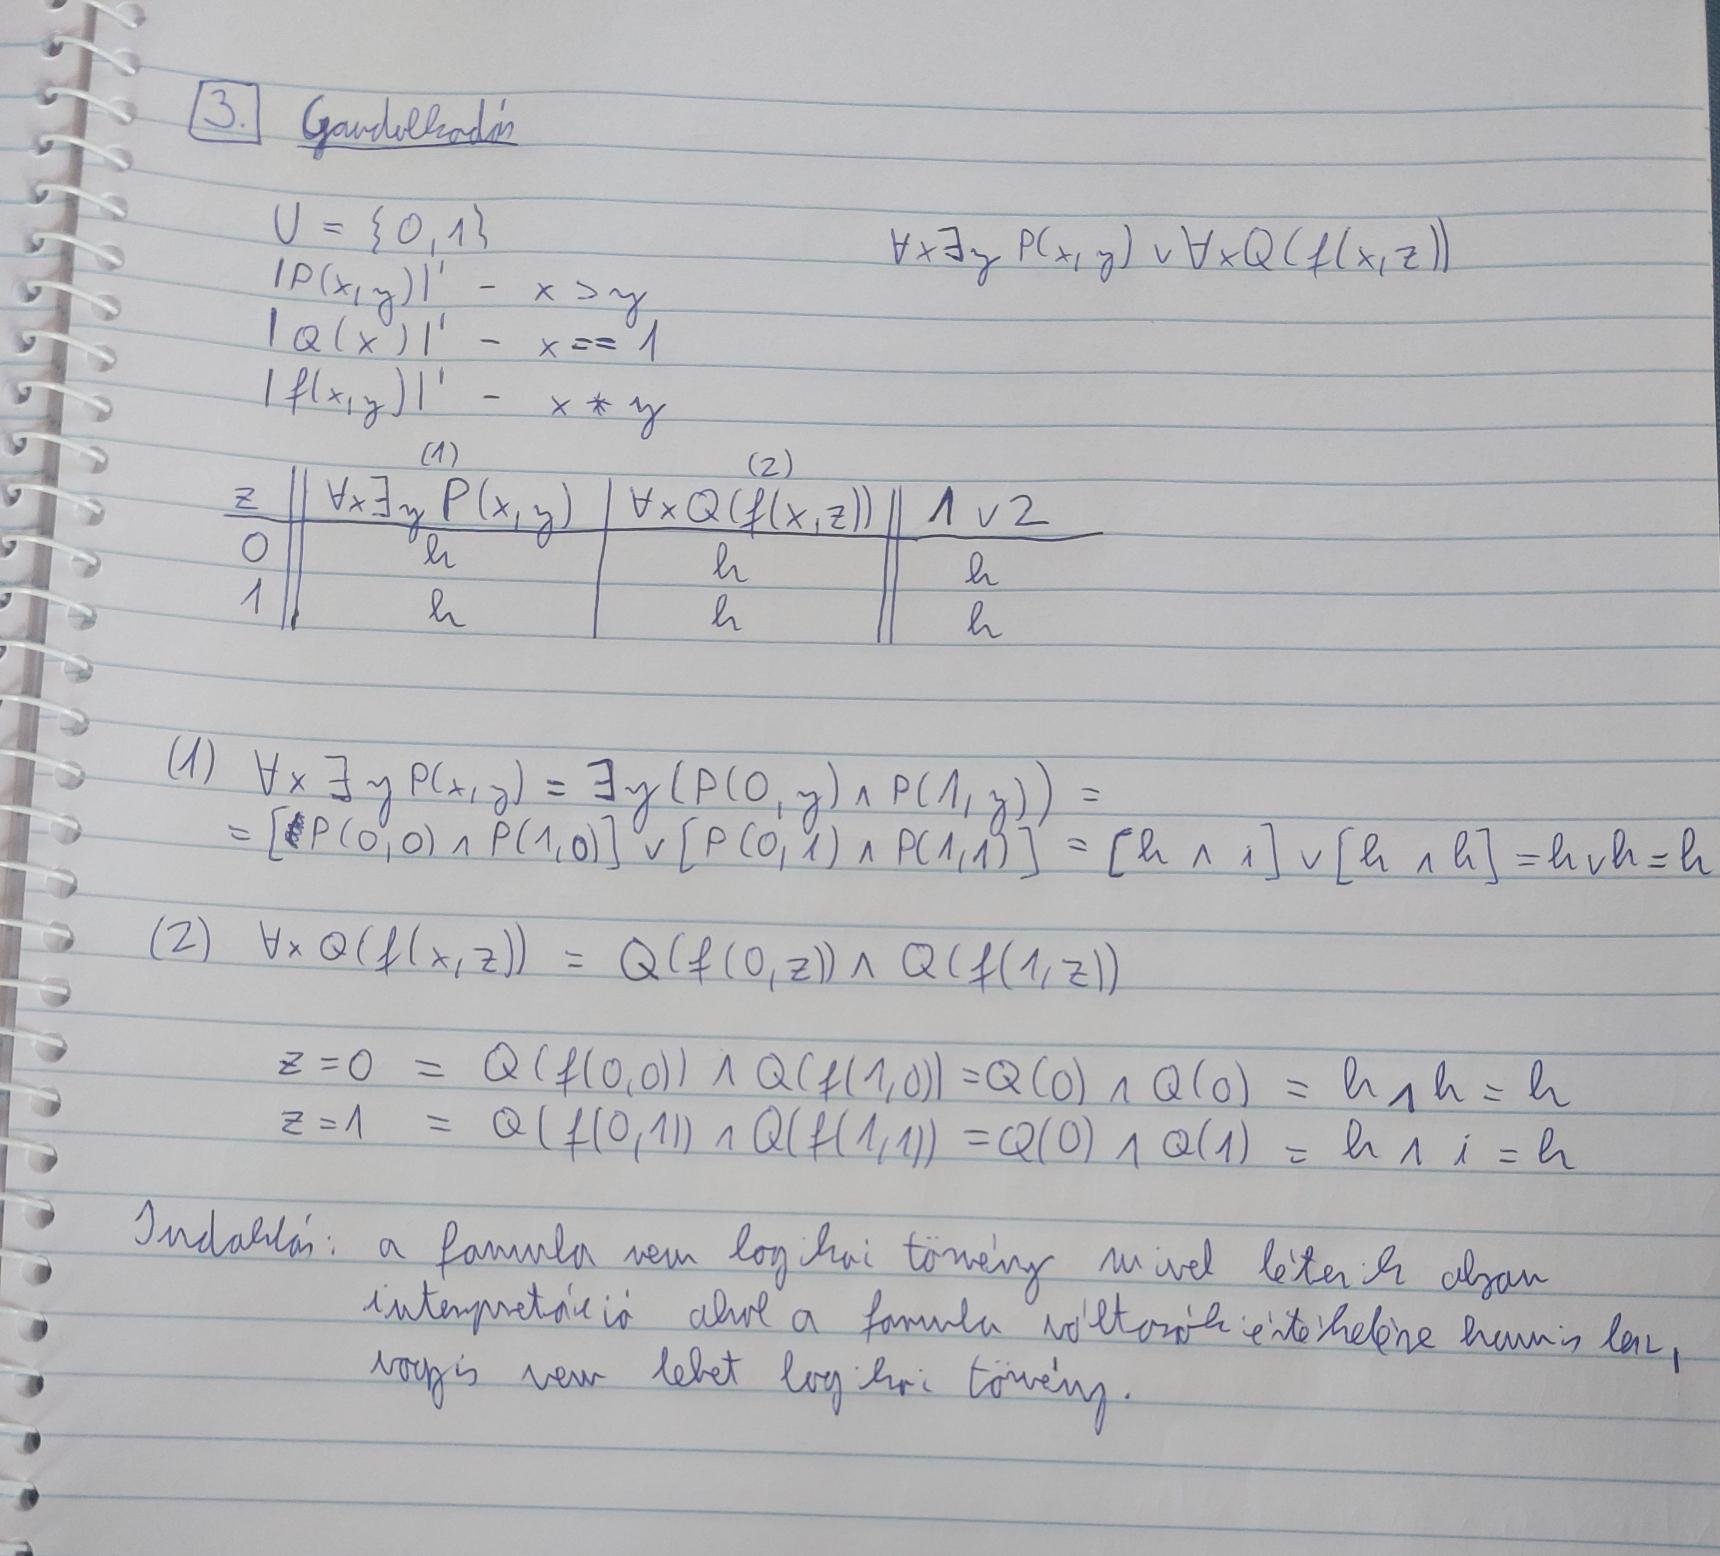 3. Gondolkodás
U = {0,1}
∀x∃y P(x,y) ∨ ∀xQ(f(x,z))
|P(x,y)|' - x > y
|Q(x)|' - x == 1
|f(x,y)|' - x * y
(1) (2)
z ∀x∃y P(x,y) ∀xQ(f(x,z)) 1 ∨ 2
0 h h h
1 h h h
(1) ∀x ∃y P(x,y) = ∃y(P(0,y) ∧ P(1,y)) =
= [P(0,0) ∧ P(1,0)] ∨ [P(0,1) ∧ P(1,1)] = [h ∧ i] ∨ [h ∧ h] = h ∨ h = h
(2) ∀x Q(f(x,z)) = Q(f(0,z)) ∧ Q(f(1,z))
z=0 = Q(f(0,0)) ∧ Q(f(1,0)) = Q(0) ∧ Q(0) = h ∧ h = h
z=1 = Q(f(0,1)) ∧ Q(f(1,1)) = Q(0) ∧ Q(1) = h ∧ i = h
Indoklás: a formula nem logikai törvény mivel létezik olyan
interpretáció ahol a formula változók értékelésre hamis lesz,
vagyis nem lehet logikai törvény.